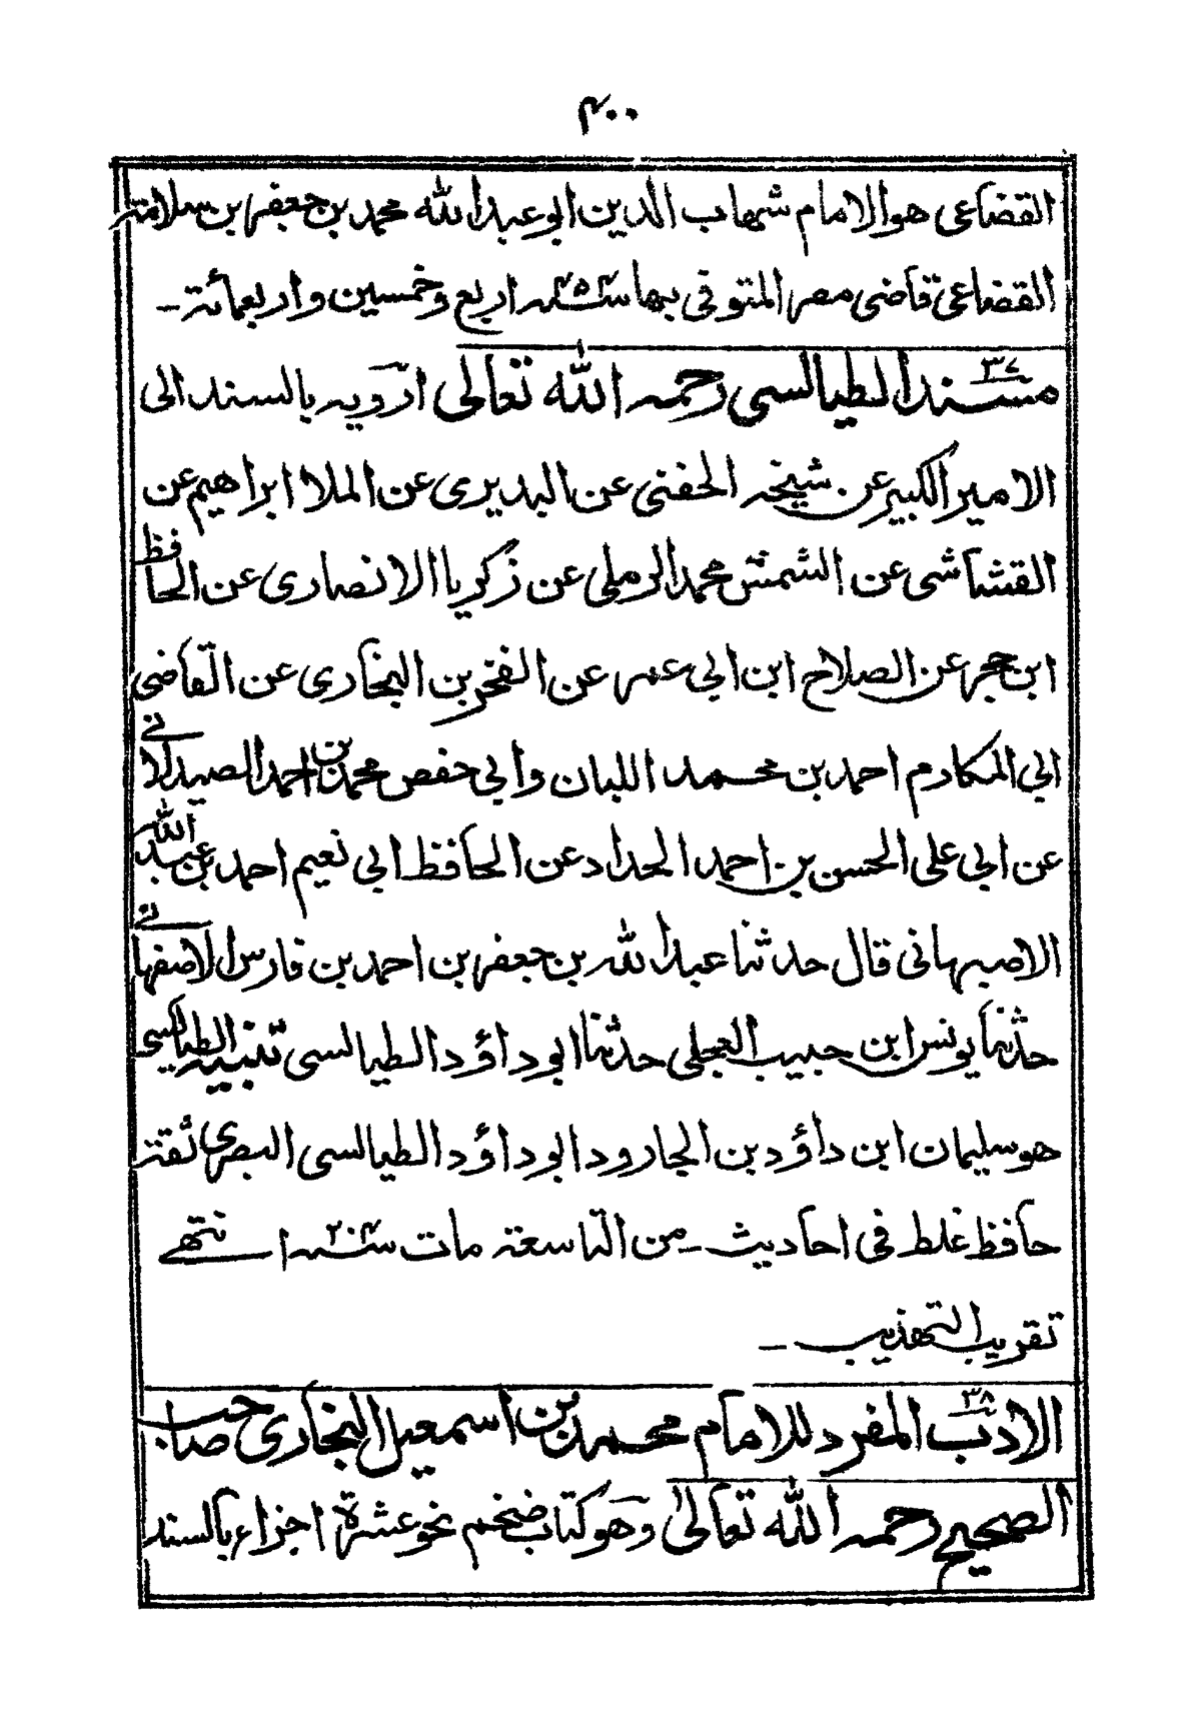 ۴۰۰
القضاعی هوالامام شهاب الدین ابوعبدالله محمد بن جعفر بن سلامة
القضاعی قاضی مصر المتوفی بها سنه ۴۵۴ اربع وخمسین واربعمائة۔
۳۷ مسند الطیالسی رحمه الله تعالی ارویه بالسند الی
الامیر الکبیر عن شیخه الحفنی عن البدیری عن الملا ابراهیم عن
القشاشی عن الشمس محمد الرملی عن زکریا الانصاری عن الحافظ
ابن حجر عن الصلاح ابن ابی عمر عن الفخر بن البخاری عن القاضی
ابی المکارم احمد بن محمد اللبان وابی حفص محمد بن احمد الصیدلانی
عن ابی علی الحسن بن احمد الحداد عن الحافظ ابی نعیم احمد بن عبد الله
الاصبهانی قال حدثنا عبدالله بن جعفر بن احمد بن فارس الاصفهانی
حدثنا یونس ابن حبیب العجلی حدثنا ابوداؤد الطیالسی تنبیه الطیالسی
هو سلیمان ابن داؤد بن الجارود ابوداؤد الطیالسی البصری ثقة
حافظ غلط فی احادیث۔ من التاسعة مات سنه ۲۰۴ انتهی
تقریب التهذیب۔
۳۸ الادب المفرد للامام محمد بن اسمعیل البخاری صاحب
الصحیح رحمه الله تعالی وهو کتاب ضخم نحو عشرة اجزاء بالسند